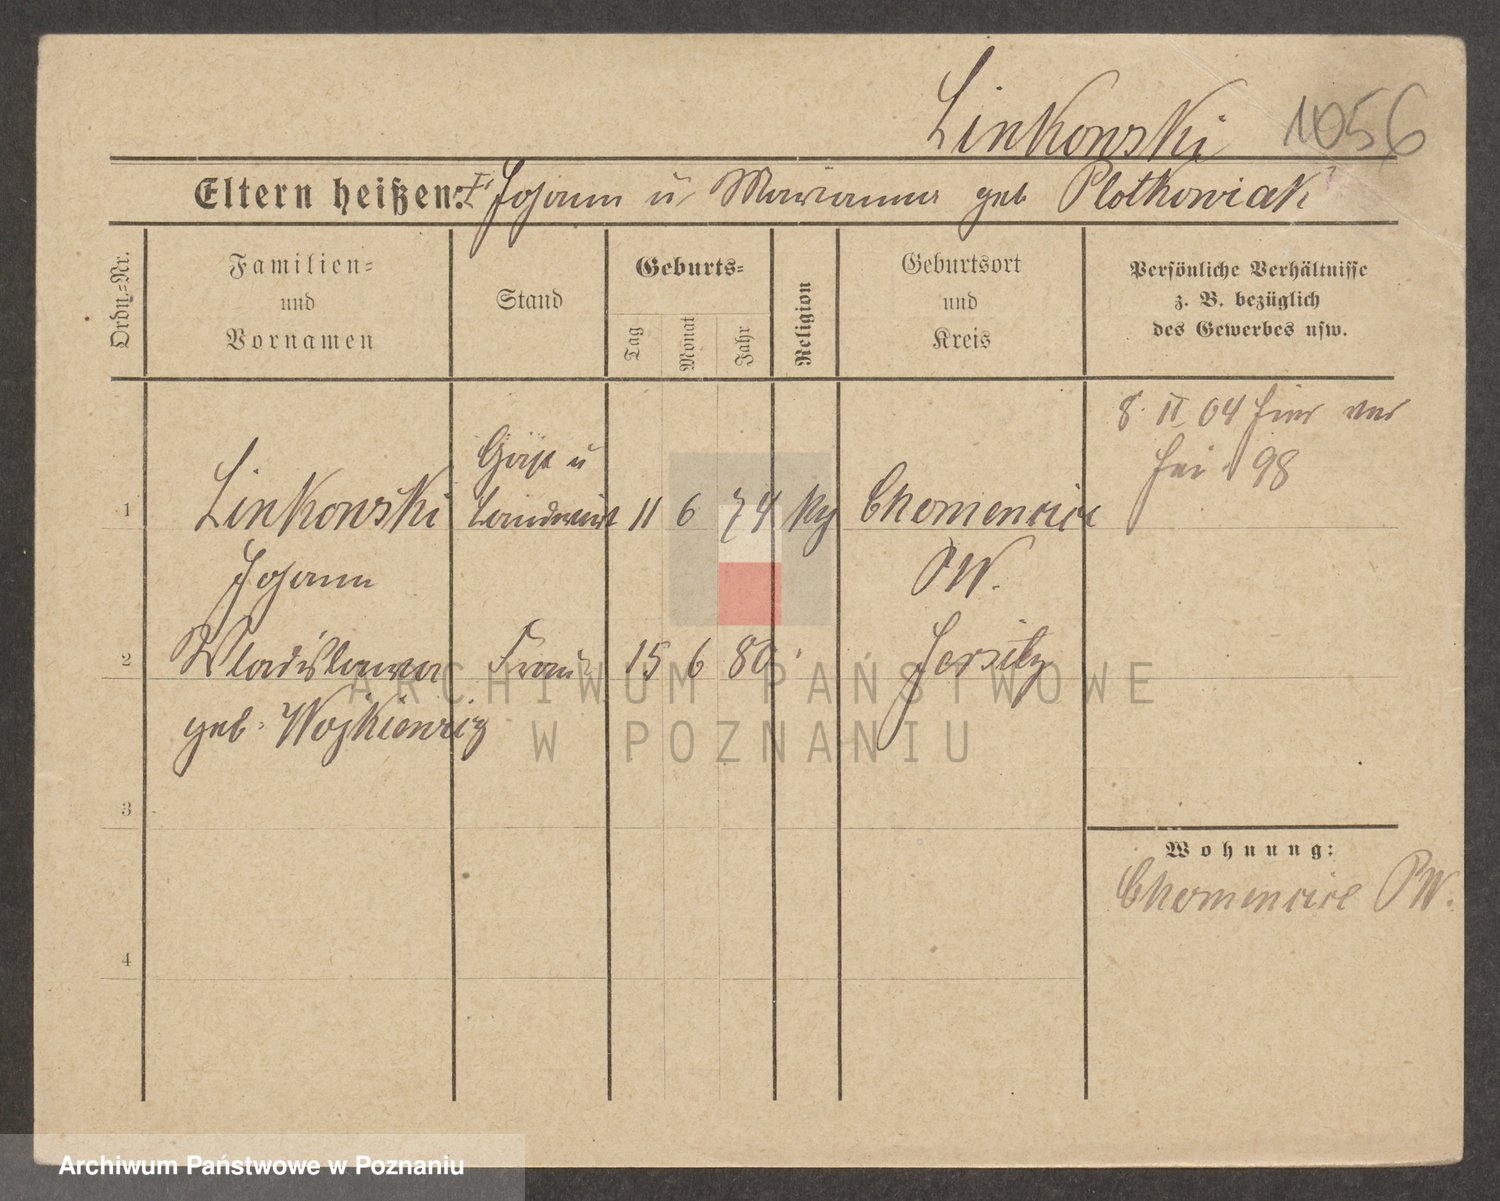 Linkowski 1056
Eltern heißen: Johann u Marianna geb Plotkowiak
Ordn.-Nr.
Familien-
und
Vornamen
Stand
Geburts-
Tag
Monat
Jahr
Religion
Geburtsort
und
Kreis
Persönliche Verhältnisse
z. B. bezüglich
des Gewerbes usw.
8. II 04 hier
98
1 Linkowski Landwirt 11 6 74 Chomencice
Johann PW.
2 Wladislawa Frau 15 6 80 Jersitz
geb. Wojkiewicz
3
4
Wohnung:
Chomencice PW.
ARCHIWUM PAŃSTWOWE
W POZNANIU
Archiwum Państwowe w Poznaniu